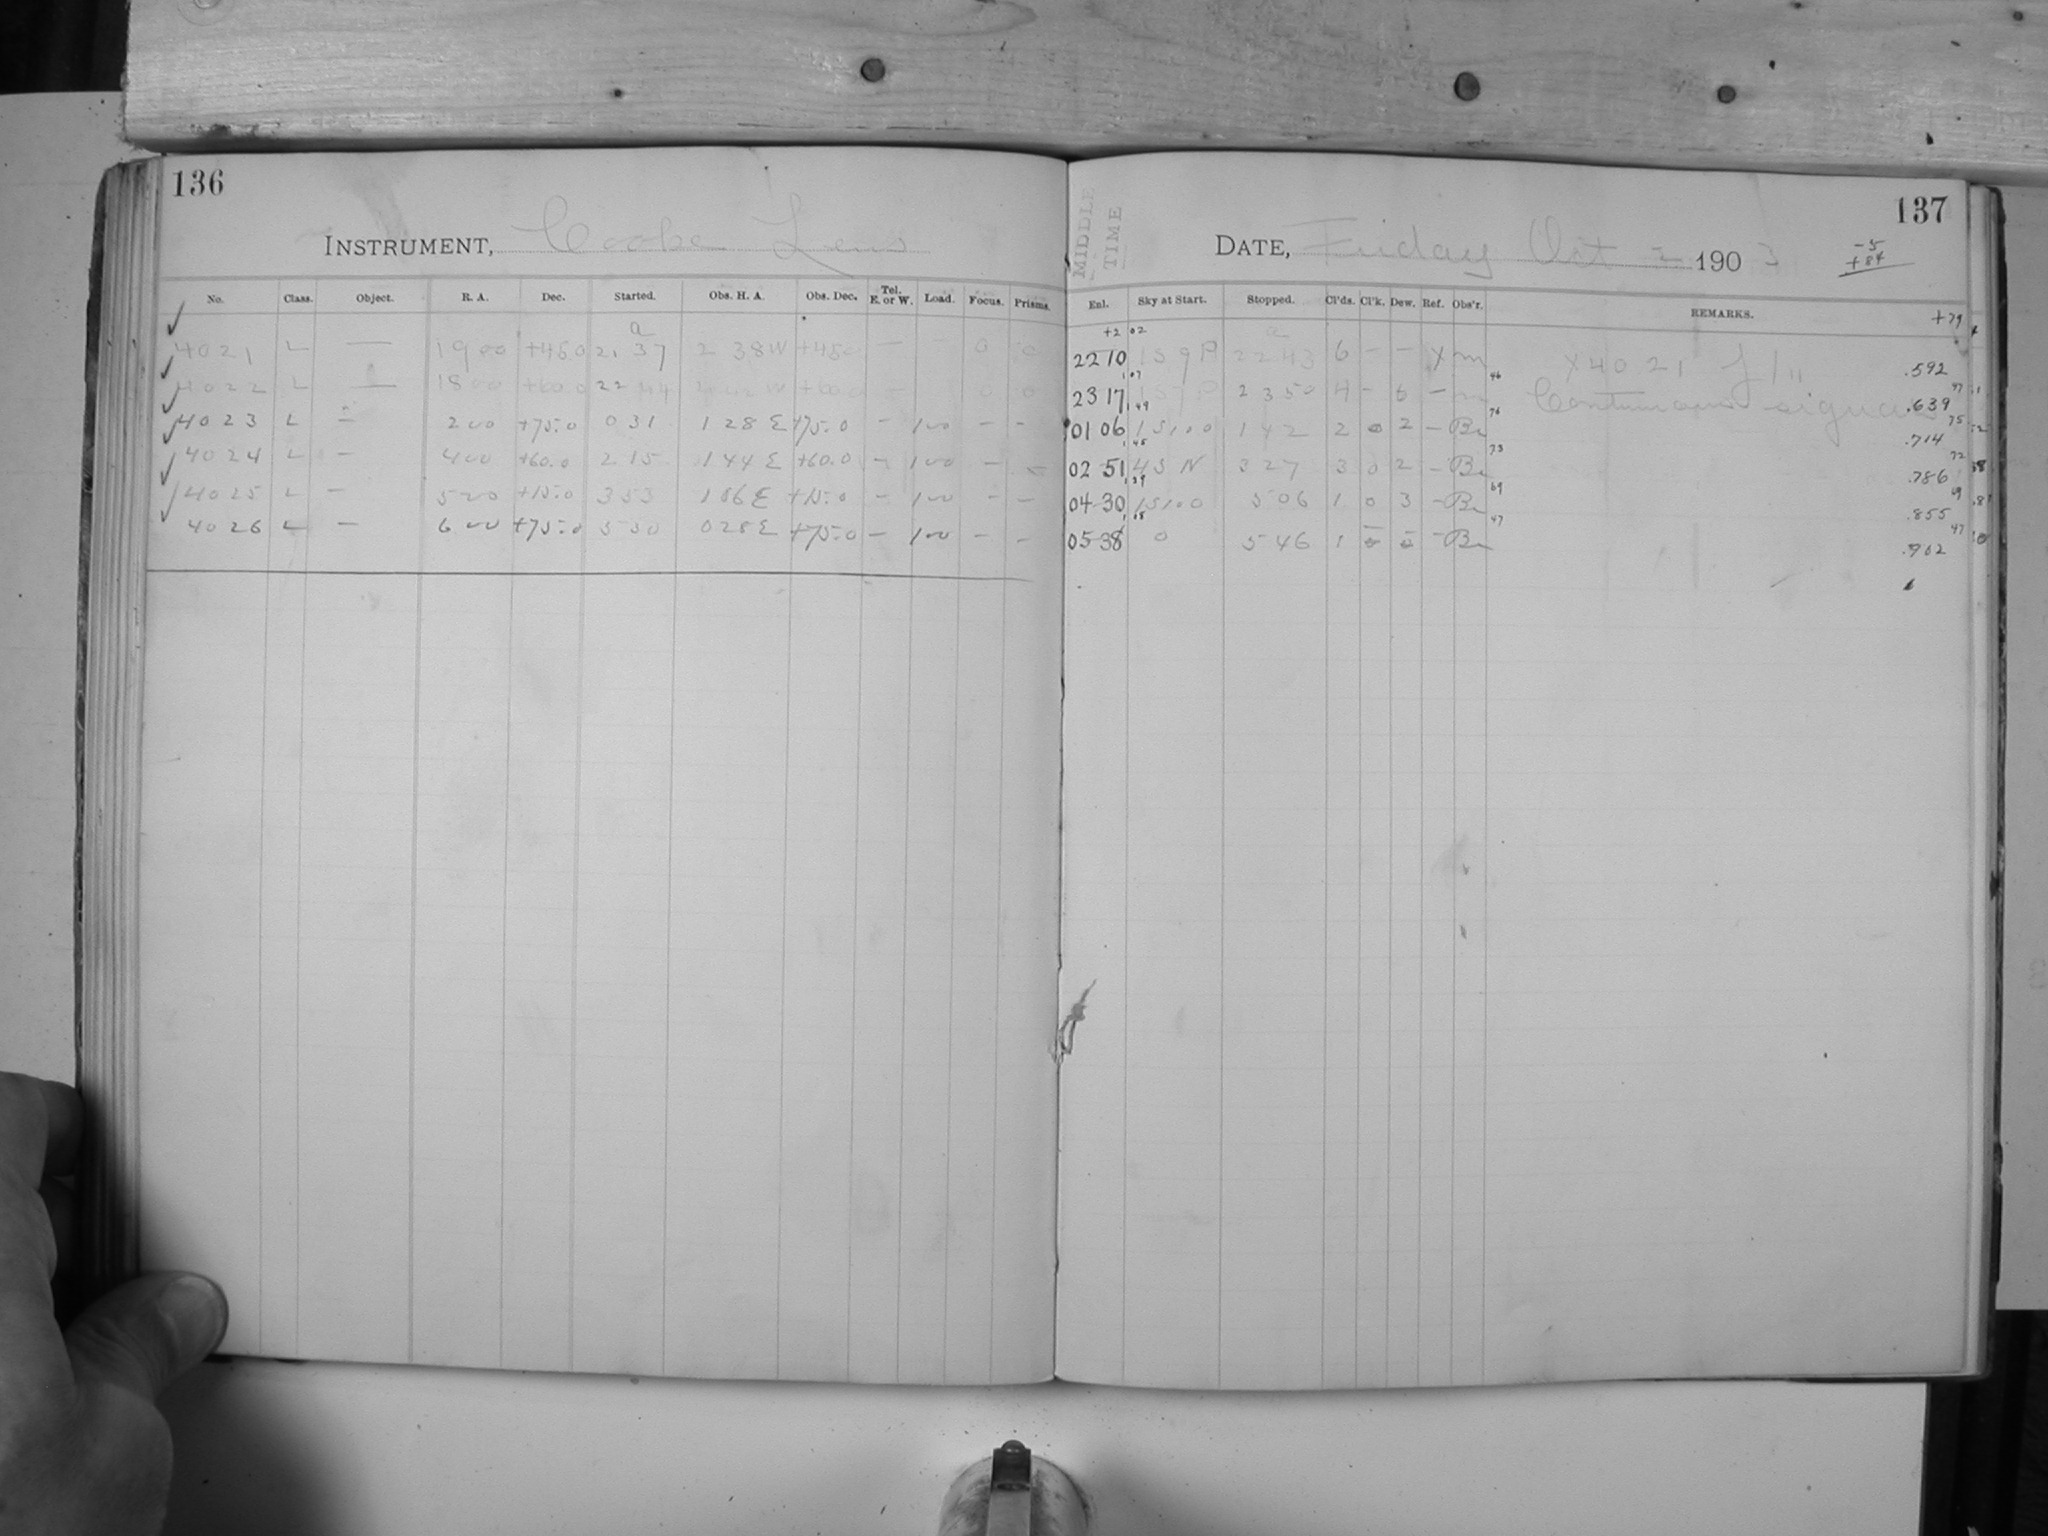 136
INSTRUMENT, Cooke Lens
No. Class. Object. R. A. Dec. Started. Obs. H. A. Obs. Dec. Tel. E. or W. Load. Focus. Prisms.
a
4021 L — 19 00 +45.0 21 37 2 38 W +45.0 — - 0 0
4022 L — 18 00 +60.0 22 44 W +60.0 — 0 0
4023 L — 2 00 +75.0 0 31 1 28 E +75.0 — 100 - -
4024 L — 4 00 +60.0 2 15 1 44 E +60.0 — 100 - -
4025 L — 5 20 +15.0 3 53 1 06 E +15.0 — 100 - -
4026 L — 6 00 +75.0 5 30 0 28 E +75.0 — 100 - -
137
MIDDLE
TIME
DATE, Friday Oct 2 1903
-5
+84
Enl. Sky at Start. Stopped. Cl'ds. Cl'k. Dew. Ref. Obs'r. REMARKS.
+79
+2 02 a
22 10 1 5 9 P 22 43 6 - - X m X 4021 .592
07 46 47
23 17 P 23 50 4 - 6 - m Continuous .639
49 76 75
01 06 15100 1 42 2 0 2 - Bn .714
45 73 72
02 51 45 N 3 27 3 0 2 - Bn .786
39 69 69
04 30 15100 5 06 1 0 3 - Bn .855
08 47 47
05 38 0 5 46 1 - Bn .902